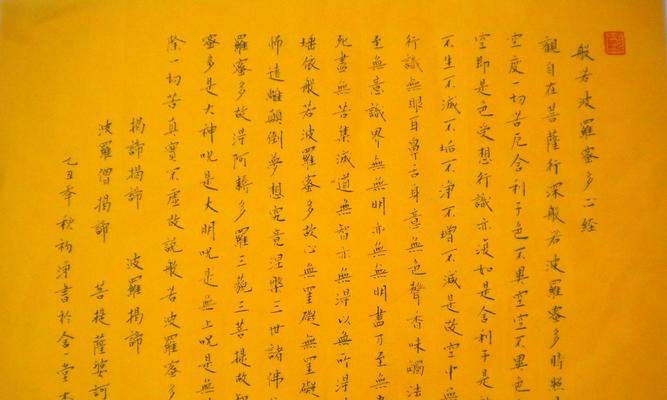 般若波羅蜜多心经
觀自在菩薩行深般若波羅蜜多時照
空度一切苦厄舍利子色不異空空不異色
空即是色受想行識亦復如是舍利子是
不生不滅不垢不淨不增不減是故空中無
行識無眼耳鼻舌身意無色聲香味觸法
至無意識界無無明亦無無明盡乃至無
死盡無苦集滅道無智亦無得以無所得
埵依般若波羅蜜多故心無罣礙無罣礙
怖遠離顛倒夢想究竟涅槃三世諸佛
羅蜜多故得阿耨多羅三藐三菩提故知
蜜多是大神咒是大明咒是無上咒是無
除一切苦真實不虛故說般若波羅蜜多
揭諦揭諦 波羅揭諦
波羅僧揭諦 菩提薩婆訶
乙丑年秋初淨書於金一堂